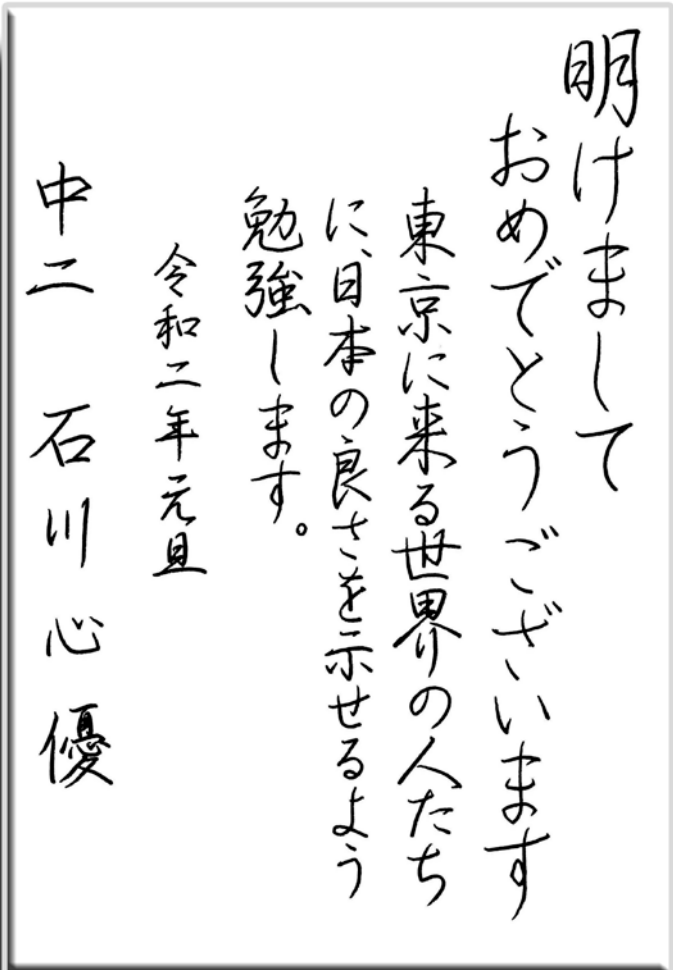 明けまして
おめでとうございます
東京に来る世界の人たち
に、日本の良さを示せるよう
勉強します。
令和二年元旦
中二 石川心優